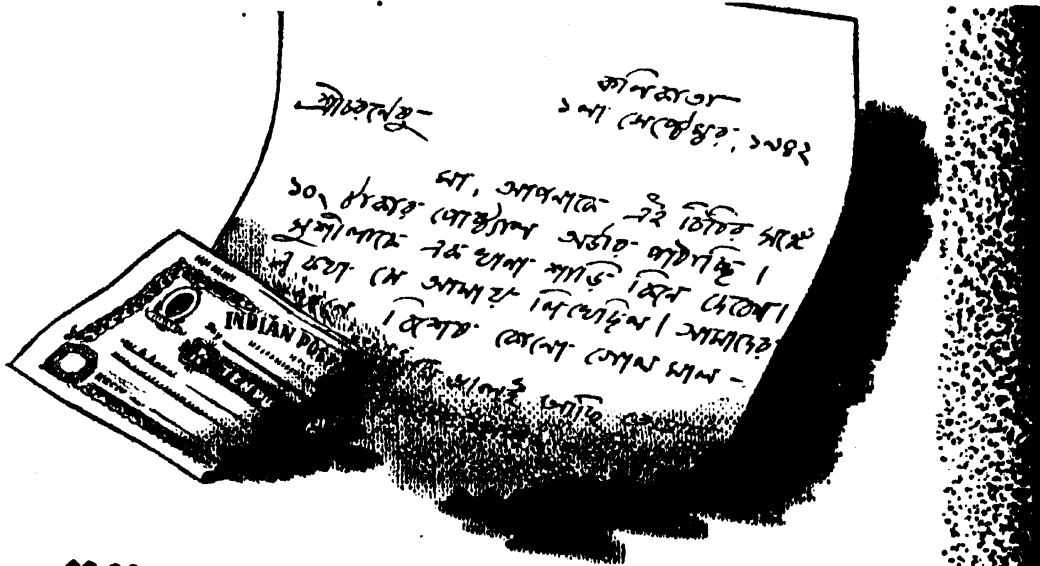 কলিকাতা
১লা সেপ্টেম্বর, ১৯৪২
শ্রীচরণেষু—
মা, আপনাকে এই চিঠির সঙ্গে
১০৲ টাকার পোষ্ট্যাল অর্ডার পাঠাচ্ছি।
সুশীলাকে এক খানা শাড়ি কিনে দেবেন।
এ কথা সে আমায় লিখেছিল। আমাদের
বিশেষ কোনো গোল মাল -
ভালই আছি
INDIAN POS